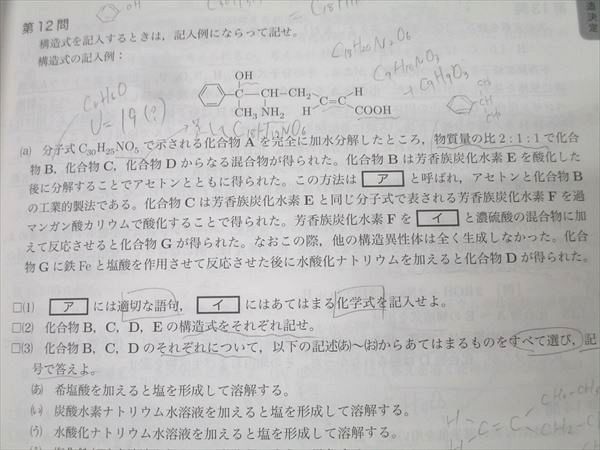 第12問
構造式を記入するときは，記入例にならって記せ。
構造式の記入例：
OH
C－CH－CH₂
CH₃ NH₂
H
C＝C
H
COOH
(a) 分子式C₃₀H₂₅NO₅で示される化合物Aを完全に加水分解したところ，物質量の比2：1：1で化合
物B，化合物C，化合物Dからなる混合物が得られた。化合物Bは芳香族炭化水素Eを酸化した
後に分解することでアセトンとともに得られた。この方法は ア と呼ばれ，アセトンと化合物B
の工業的製法である。化合物Cは芳香族炭化水素Eと同じ分子式で表される芳香族炭化水素Fを過
マンガン酸カリウムで酸化することで得られた。芳香族炭化水素Fを イ と濃硫酸の混合物に加
えて反応させると化合物Gが得られた。なおこの際，他の構造異性体は全く生成しなかった。化合
物Gに鉄Feと塩酸を作用させて反応させた後に水酸化ナトリウムを加えると化合物Dが得られた。
□(1) ア には適切な語句， イ にはあてはまる化学式を記入せよ。
□(2) 化合物B，C，D，Eの構造式をそれぞれ記せ。
□(3) 化合物B，C，Dのそれぞれについて，以下の記述(あ)～(お)からあてはまるものをすべて選び，記
号で答えよ。
(あ) 希塩酸を加えると塩を形成して溶解する。
(い) 炭酸水素ナトリウム水溶液を加えると塩を形成して溶解する。
(う) 水酸化ナトリウム水溶液を加えると塩を形成して溶解する。